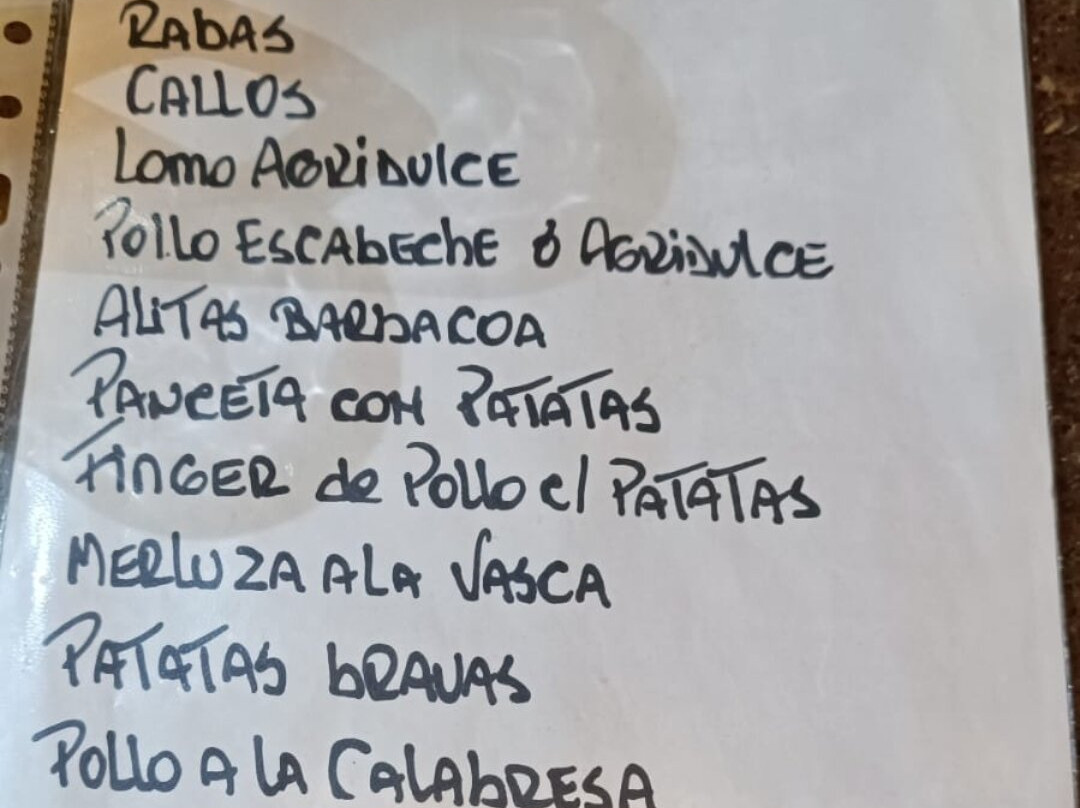 RAbAS
CALLOS
Lomo AGRiDulCE
Pollo ESCAbEChE ó AGRiDulCE
ALITAS BARbACOA
PANCETA CON PATATAS
FINGER de Pollo c/ PATATAS
MERluZA A LA VASCA
PATATAS bRAVAS
Pollo A lA CAlAbRESA